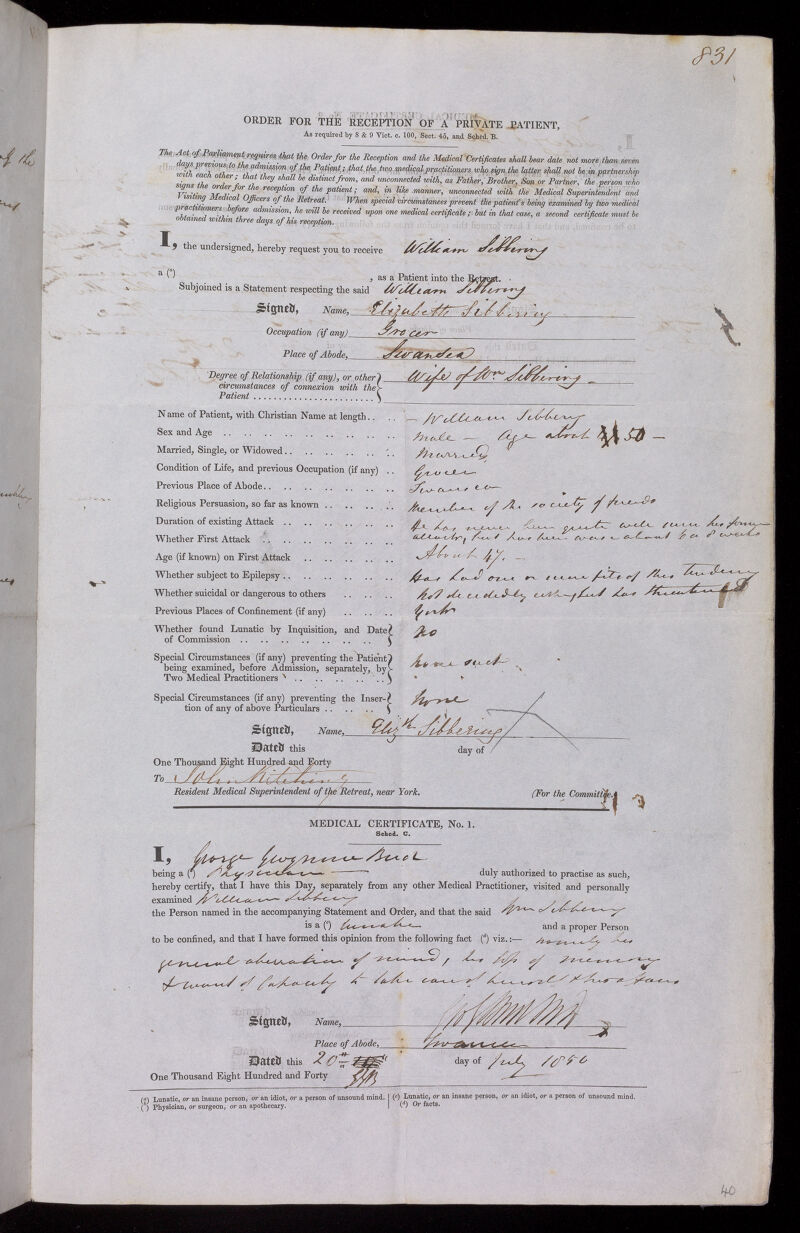 831
ORDER FOR THE RECEPTION OF A PRIVATE PATIENT,
As required by 8 & 9 Vict. c. 100, Sect. 45, and Sched. B.
The Act of Parliament requires that the Order for the Reception and the Medical Certificates shall bear date not more than seven
days previous to the admission of the Patient; that the two medical practitioners who sign the latter shall not be in partnership
with each other; that they shall be distinct from, and unconnected with, as Father, Brother, Son or Partner, the person who
signs the order for the reception of the patient; and, in like manner, unconnected with the Medical Superintendent and
Visiting Medical Officers of the Retreat. When special circumstances prevent the patient's being examined by two medical
practitioners before admission, he will be received upon one medical certificate; but in that case, a second certificate must be
obtained within three days of his reception.
I, the undersigned, hereby request you to receive William Sibbering
a (a) , as a Patient into the Retreat.
Subjoined is a Statement respecting the said William Sibbering
Signed, Name, Elizabeth Sibbering
Occupation (if any) Grocer
Place of Abode, Swansea
Degree of Relationship (if any), or other
circumstances of connexion with the
Patient
Wife of Wm Sibbering
Name of Patient, with Christian Name at length William Sibbering
Sex and Age male – Age about 50 –
Married, Single, or Widowed Married
Condition of Life, and previous Occupation (if any) Grocer
Previous Place of Abode Swansea
Religious Persuasion, so far as known Member of the society of friends
Duration of existing Attack He has never been quite well since his former
Whether First Attack attack, but has been worse about 6 or 8 weeks
Age (if known) on First Attack About 47. –
Whether subject to Epilepsy Has had one or more fits of this tendency
Whether suicidal or dangerous to others Not decidedly either, but has threatened
Previous Places of Confinement (if any) York
Whether found Lunatic by Inquisition, and Date
of Commission
No
Special Circumstances (if any) preventing the Patient
being examined, before Admission, separately, by
Two Medical Practitioners
None such
Special Circumstances (if any) preventing the Inser-
tion of any of above Particulars
None
Signed, Name, Elizth Sibbering
Dated this day of
One Thousand Eight Hundred and Forty
To John Kitching
Resident Medical Superintendent of the Retreat, near York. (For the Committee.)
MEDICAL CERTIFICATE, No. 1.
Sched. C.
I, George Gwynne Bird
being a (b) Physician duly authorized to practise as such,
hereby certify, that I have this Day, separately from any other Medical Practitioner, visited and personally
examined William Sibbering
the Person named in the accompanying Statement and Order, and that the said Wm Sibbering
is a (c) lunatic and a proper Person
to be confined, and that I have formed this opinion from the following fact (d) viz.:— namely his
general aberration of mind, his loss of memory
& want of Capacity to take care of himself & his affairs
Signed, Name, G G Bird MD
Place of Abode, Swansea
Dated this 20th day of July 1850
One Thousand Eight Hundred and Forty
(a) Lunatic, or an insane person, or an idiot, or a person of unsound mind.
(b) Physician, or surgeon, or an apothecary.
(c) Lunatic, or an insane person, or an idiot, or a person of unsound mind.
(d) Or facts.
40